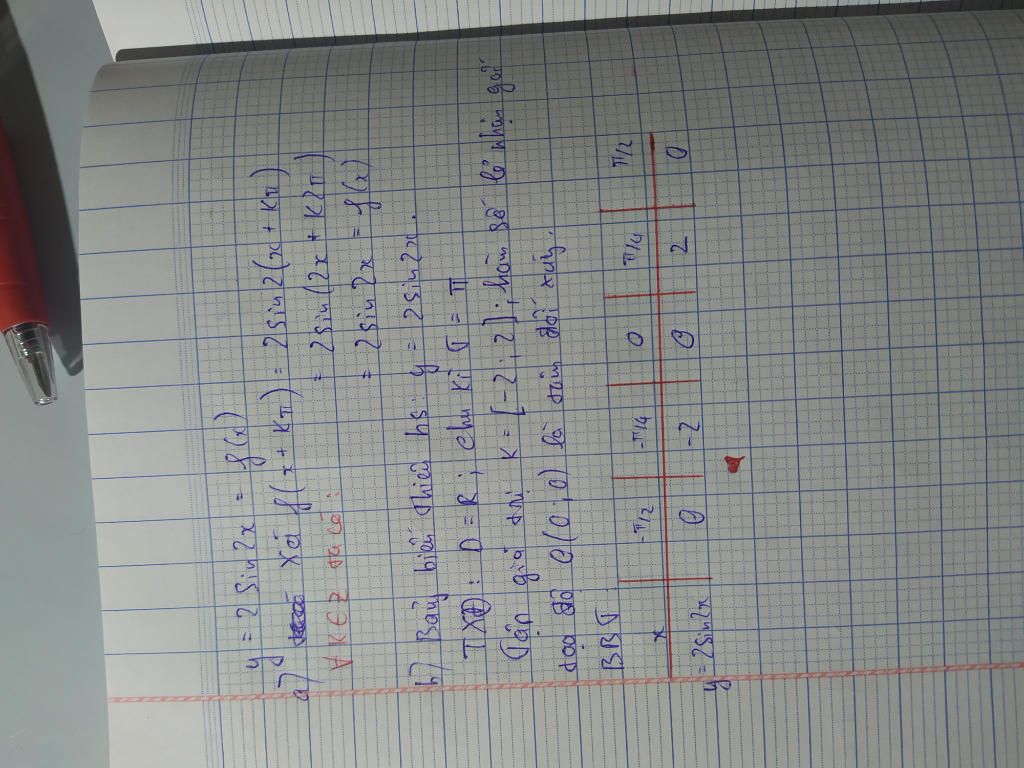 y = 2 sin2x = f(x)
a) Xét f(x + kπ) = 2sin2(x + kπ)
∀ k ∈ Z ta có: = 2sin(2x + k2π)
= 2sin2x = f(x)
b) Bảng biến thiên hs: y = 2sin2x.
TXĐ: D = R; chu kì T = π
Tập giá trị K = [-2; 2]; hàm số lẻ nhận gốc
tọa độ O(0; 0) là tâm đối xứng.
BBT
x -π/2 -π/4 0 π/4 π/2
y = 2sin2x 0 -2 0 2 0